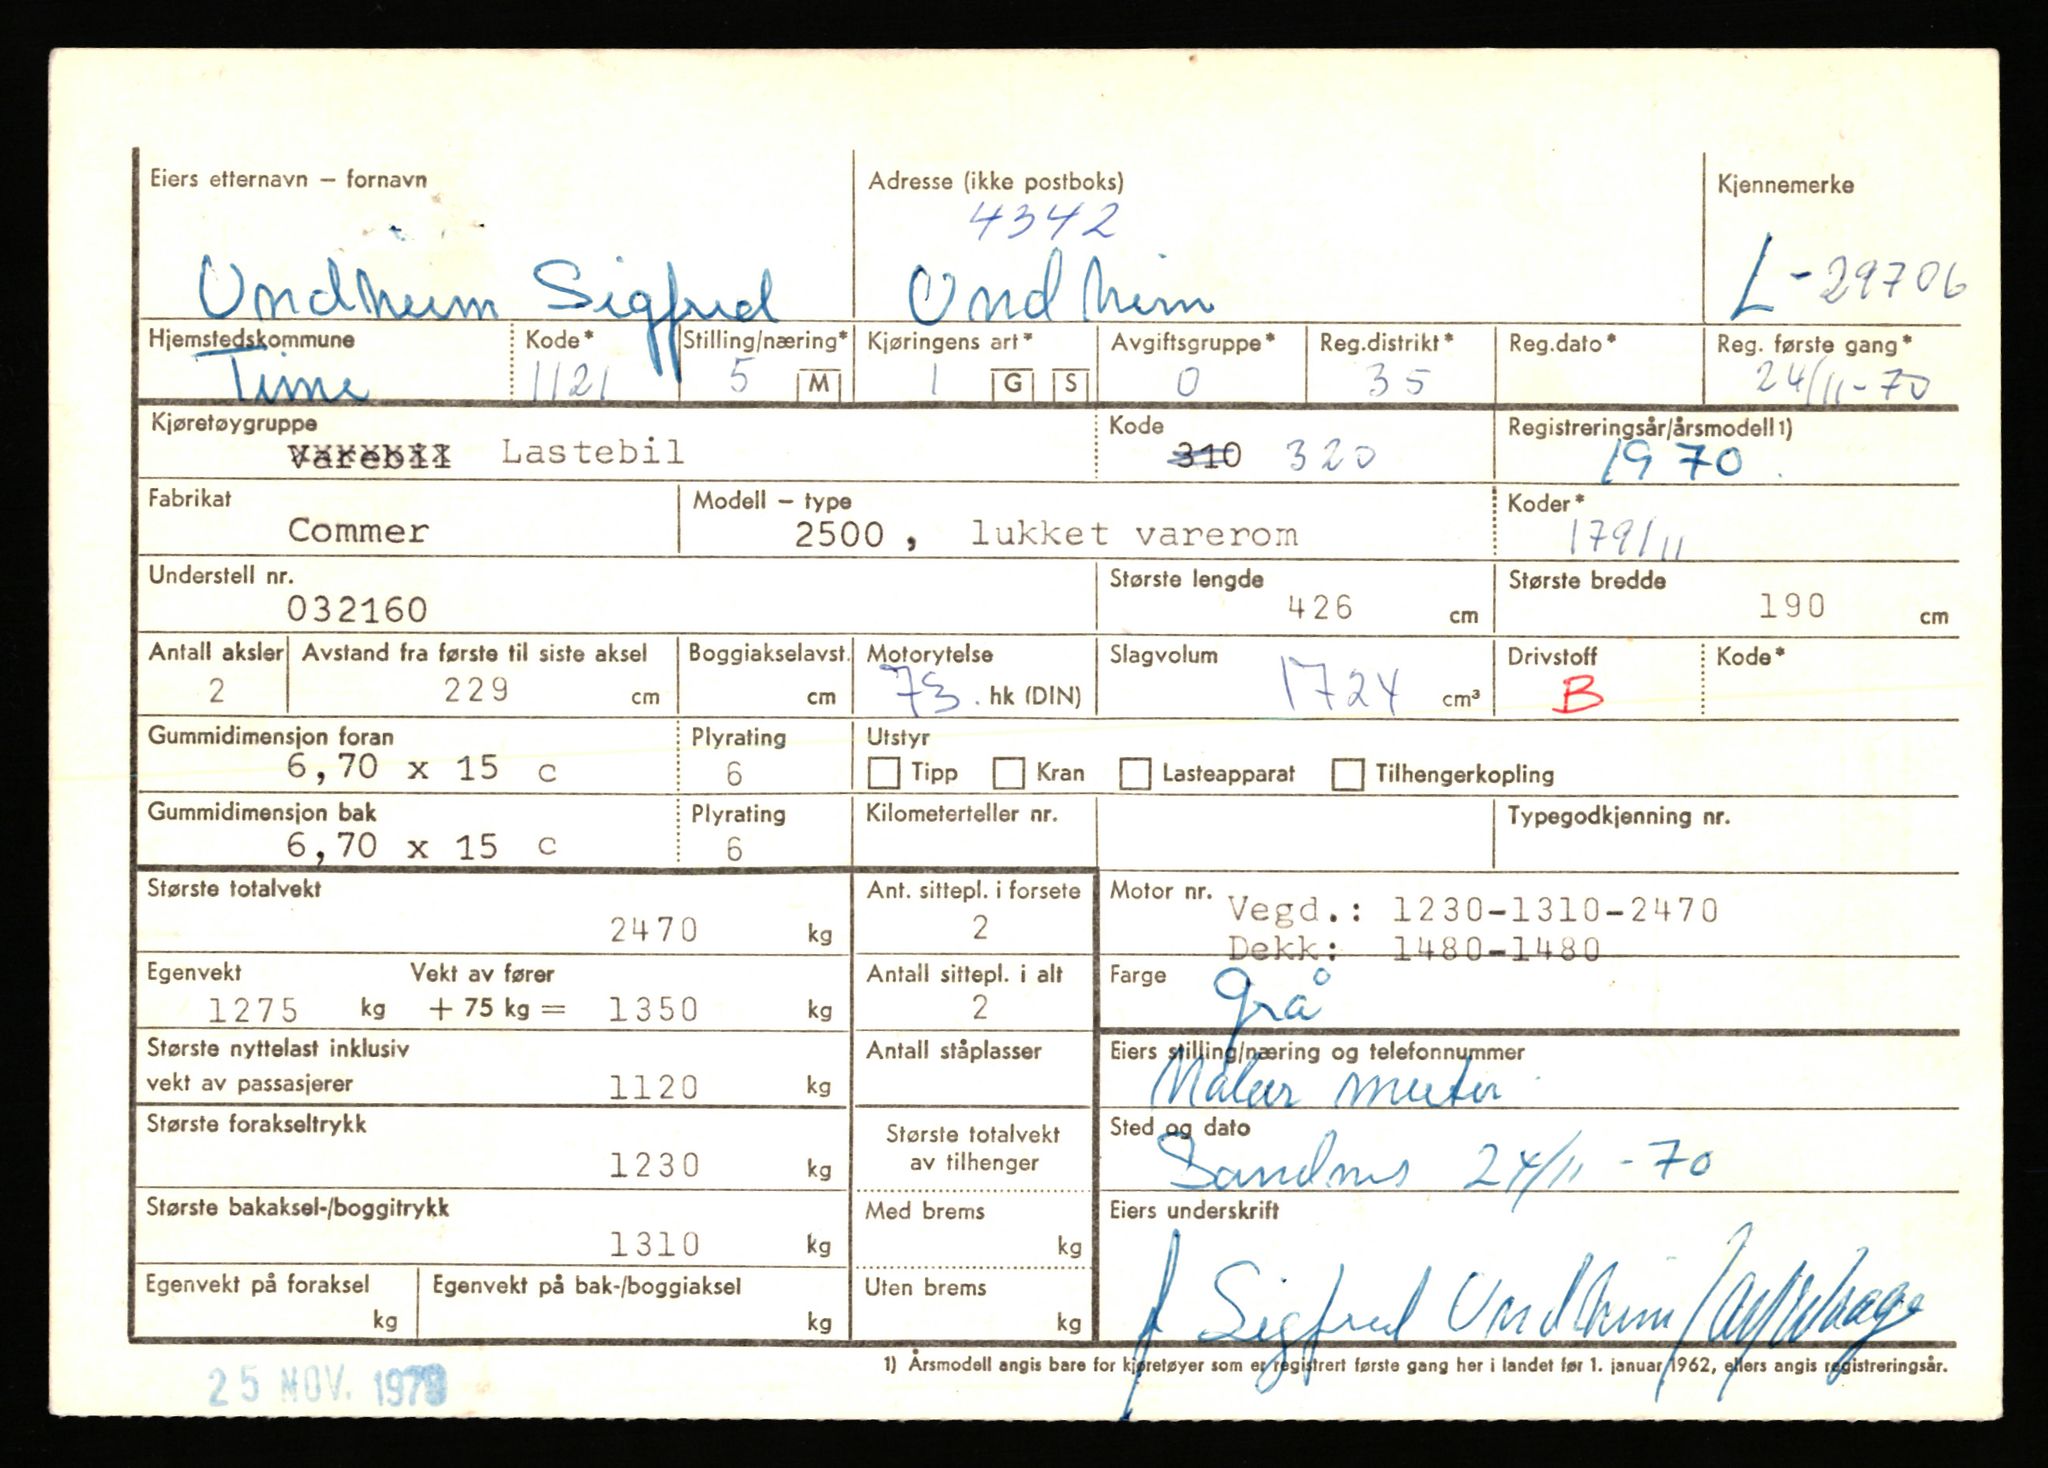 Eiers etternavn – fornavn Adresse (ikke postboks) Kjennemerke
4342
Undheim Sigfred Undheim L-29706
Hjemstedskommune Kode* Stilling/næring* Kjøringens art* Avgiftsgruppe* Reg.distrikt* Reg.dato* Reg. første gang*
Time 1121 5 M 1 G S 0 35 24/11-70
Kjøretøygruppe Kode Registreringsår/årsmodell 1)
Varebil Lastebil 310 320 1970
Fabrikat Modell – type Koder*
Commer 2500, lukket varerom 179/11
Understell nr. Største lengde Største bredde
032160 426 cm 190 cm
Antall aksler Avstand fra første til siste aksel Boggiakselavst. Motorytelse Slagvolum Drivstoff Kode*
2 229 cm cm 73. hk (DIN) 1724 cm³ B
Gummidimensjon foran Plyrating Utstyr
6,70 x 15 c 6 Tipp Kran Lasteapparat Tilhengerkopling
Gummidimensjon bak Plyrating Kilometerteller nr. Typegodkjenning nr.
6,70 x 15 c 6
Største totalvekt Ant. sittepl. i forsete Motor nr. Vegd.: 1230-1310-2470
2470 kg 2 Dekk: 1480-1480
Egenvekt Vekt av fører Antall sittepl. i alt Farge
1275 kg + 75 kg = 1350 kg 2 grå
Største nyttelast inklusiv Antall ståplasser Eiers stilling/næring og telefonnummer
vekt av passasjerer 1120 kg Maler mester
Største forakseltrykk Største totalvekt av tilhenger Sted og dato
1230 kg Sandnes 24/11-70
Største bakaksel-/boggitrykk Med brems Eiers underskrift
1310 kg kg
Egenvekt på foraksel Egenvekt på bak-/boggiaksel Uten brems Sigfred Undheim
kg kg kg
1) Årsmodell angis bare for kjøretøyer som er registrert første gang her i landet før 1. januar 1962, ellers angis registreringsår.
25 NOV. 1970